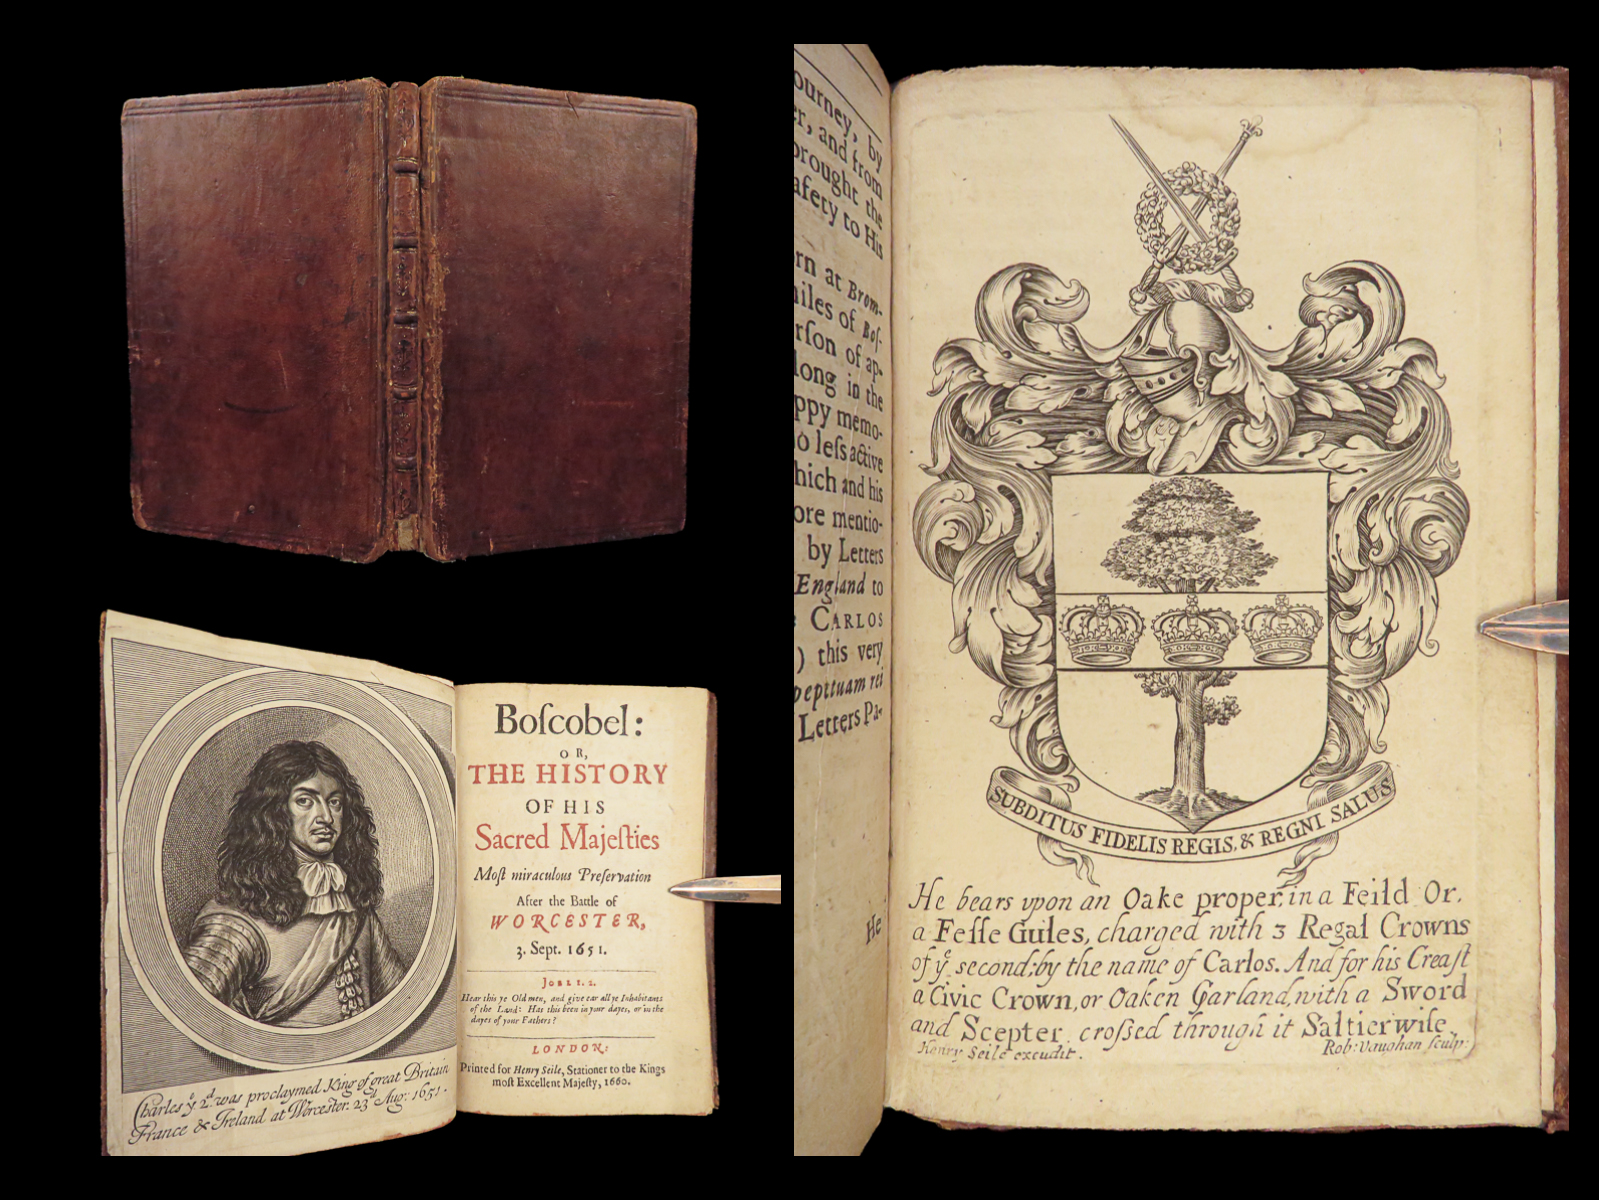 Boſcobel:
OR,
THE HISTORY
OF HIS
Sacred Majeſties
Moſt miraculous Preſervation
After the Battle of
WORCESTER,
3. Sept. 1651.
JOEL 1. 2.
Hear this ye Old men, and give ear all ye Inhabitants
of the Land: Has this been in your dayes, or in the
dayes of your Fathers?
LONDON:
Printed for Henry Seile, Stationer to the Kings
moſt Excellent Majeſty, 1660.
Charles yͤ 2ͩ. was proclaymed King of great Britain
France & Ireland at Worcester. 23ͩ Aug: 1651.
ourney, by
er, and from
brought the
afety to His
rn at Brom-
miles of Boſ-
rſon of ap-
long in the
ppy memo-
o leſs active
hich and his
ore mentio-
by Letters
England to
: CARLOS
) this very
perpetuam rei
Letters Pa-
He
SUBDITUS FIDELIS REGIS, & REGNI SALUS
He bears vpon an Oake proper, in a Feild Or,
a Feſſe Gules, charged with 3 Regal Crowns
of yͤ second; by the name of Carlos. And for his Creaſt
a Civic Crown, or Oaken Garland, with a Sword
and Scepter croſsed through it Saltierwiſe.
Henry Seile excudit.
Rob: Vaughan ſculp: